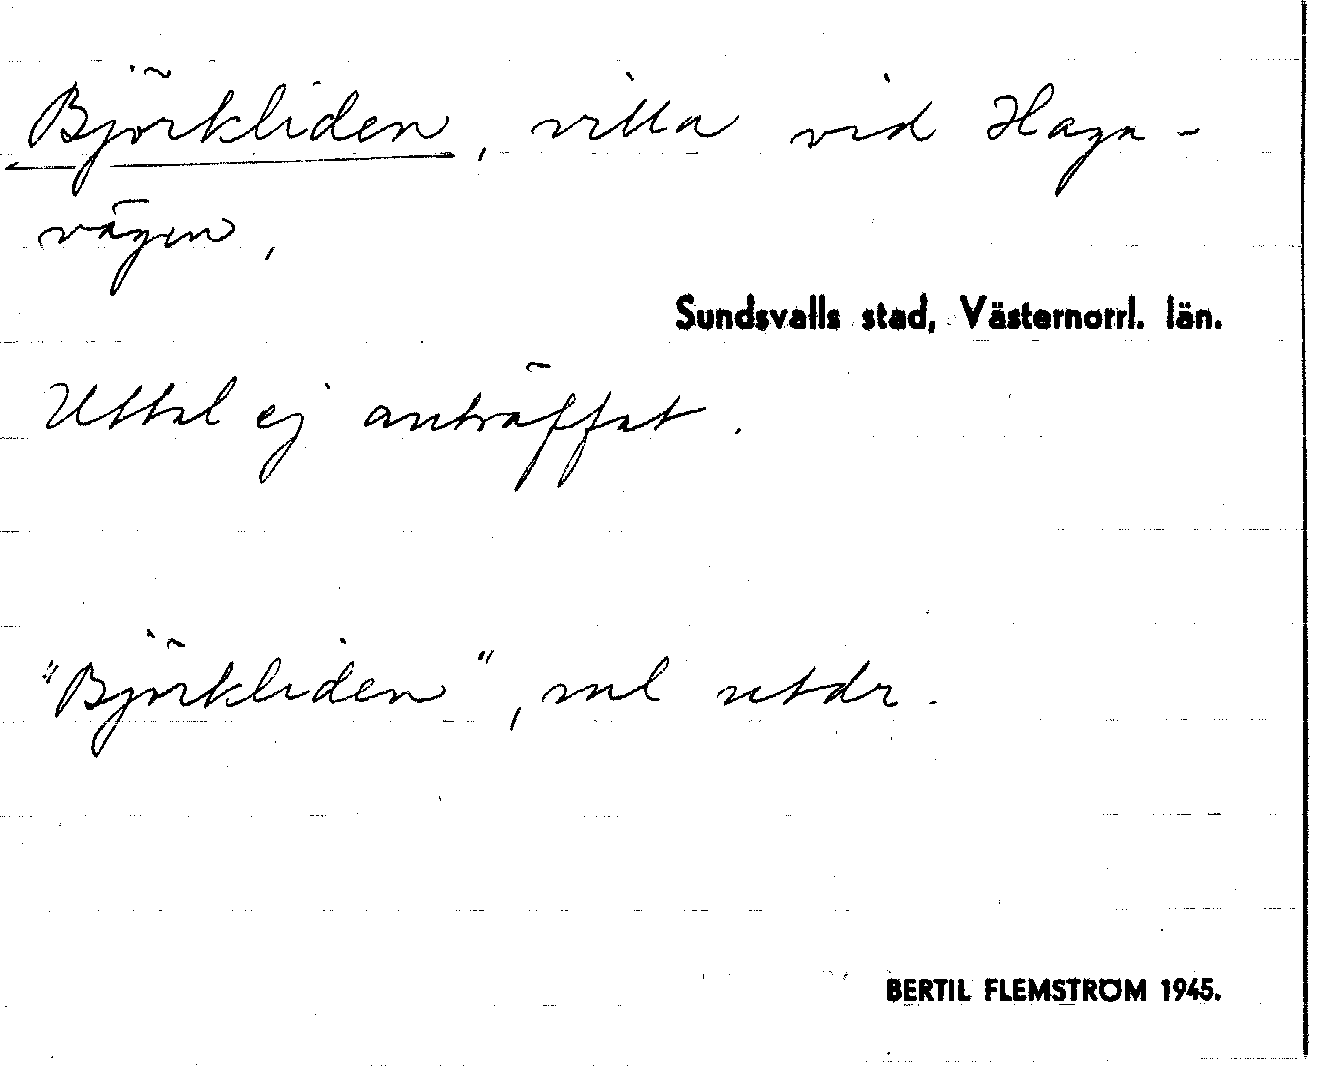 Björkliden, villa vid Haga-
vägen,
Sundsvalls stad, Västernorrl. län.
Uttal ej anträffat.
"Björkliden", enl utdr.
BERTIL FLEMSTRÖM 1945.